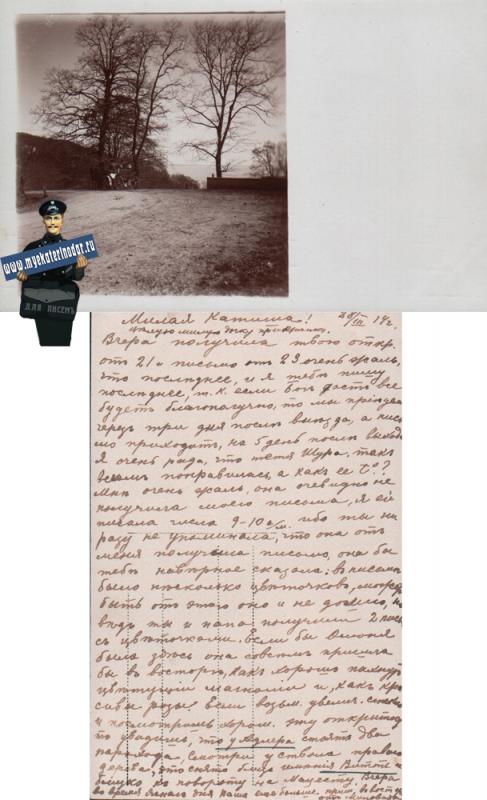 www.myekaterinodar.ru
ДЛЯ ПИСЕМЪ
Милая Катиша! 28/III 14 г.
целую милую
Вчера получила твою откр.
отъ 21 и письмо отъ 23 очень жаль,
что последнее, и я тебе пишу
последнее, т.к. если Богъ дастъ все
будетъ благополучно, то мы приедем
черезъ три дня после выезда, а пись
мо приходитъ, на 5 день после
Я очень рада, что тетя Шура такъ
всемъ понравилась, а какъ ее t°?
Мне очень жаль, она очевидно не
получила моего письма, я ей
писала числа 9-10 ибо ты ни
разу не упоминала, что она отъ
меня получила письмо, она бы
тебе наверное сказала: въ письме
было несколько цветочковъ, может
быть отъ этого оно и не дошло, но
ведь ты и папа получили 2 письма
съ цветочками. Если бы
была здесь она совсемъ пришла
бы въ восторгъ, какъ хорошо пахнутъ
цветущия и, какъ кра
сивы розы. Если возьм. увелич. стекло
и посмотришь хорош. эту открытку
то увидишь, что у Адлера стоятъ два
парохода, смотри у ствола праваго
дерева, это снято близь имения Витте
близко къ повороту на Мацесту. Вчера
во время дня наша еще больше прих. въ восторгъ
отъ